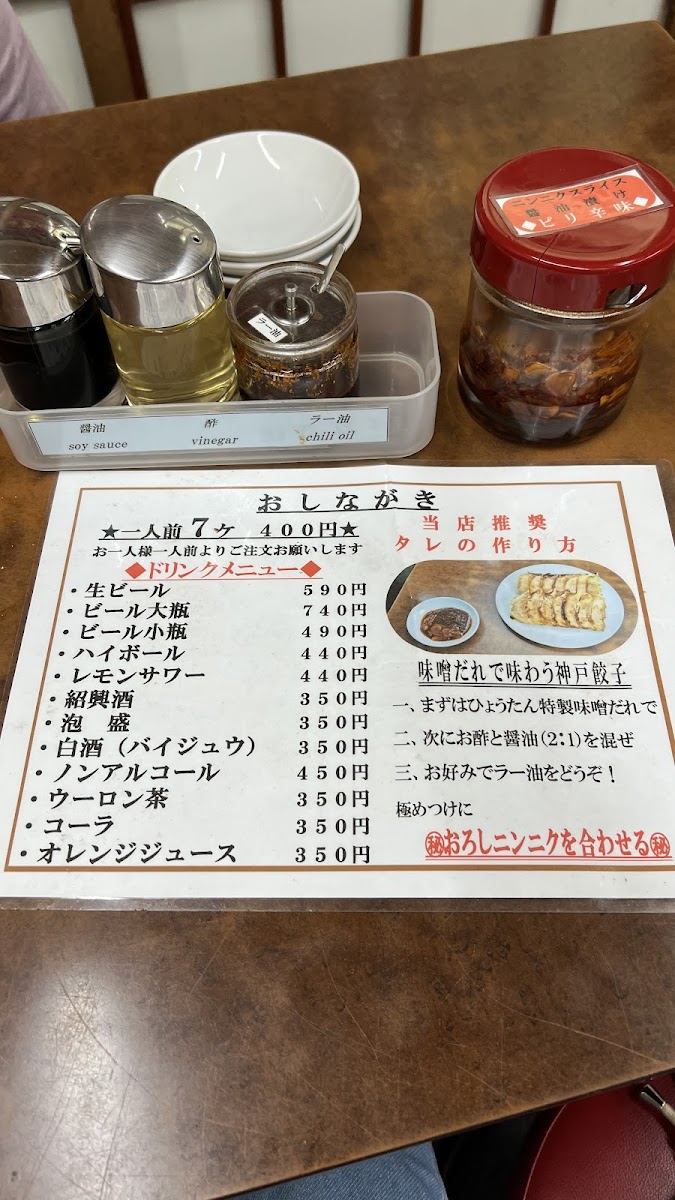 ニンニクスライス
醤油漬け
◆ピリ辛味◆
ラー油
醤油 酢 ラー油
soy sauce vinegar chili oil
おしながき
★一人前7ヶ 400円★
お一人様一人前よりご注文お願いします
◆ドリンクメニュー◆
・生ビール 590円
・ビール大瓶 740円
・ビール小瓶 490円
・ハイボール 440円
・レモンサワー 440円
・紹興酒 350円
・泡 盛 350円
・白酒（バイジュウ） 350円
・ノンアルコール 450円
・ウーロン茶 350円
・コーラ 350円
・オレンジジュース 350円
当店推奨
タレの作り方
味噌だれで味わう神戸餃子
一、まずはひょうたん特製味噌だれで
二、次にお酢と醤油(2:1)を混ぜ
三、お好みでラー油をどうぞ！
極めつけに
㊙おろしニンニクを合わせる㊙